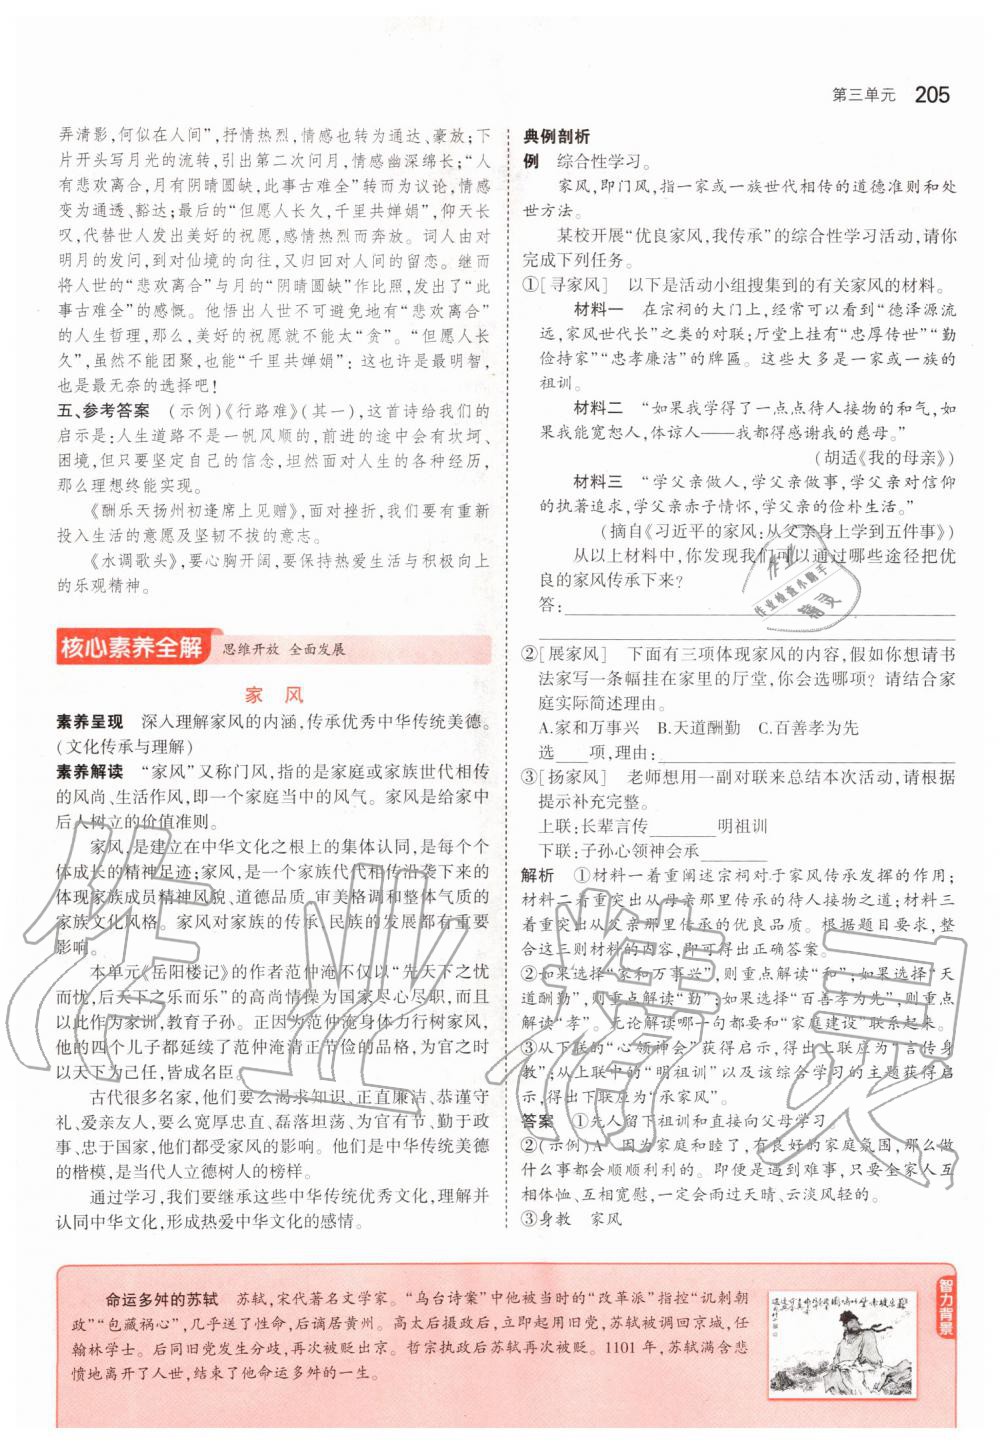 第三单元 205
弄清影,何似在人间”,抒情热烈,情感也转为通达、豪放;下
片开头写月光的流转,引出第二次问月,情感幽深绵长;“人
有悲欢离合,月有阴晴圆缺,此事古难全”转而为议论,情感
变为通透、豁达;最后的“但愿人长久,千里共婵娟”,仰天长
叹,代替世人发出美好的祝愿,感情热烈而奔放。词人由对
明月的发问,到对仙境的向往,又归回对人间的留恋。继而
将人世的“悲欢离合”与月的“阴晴圆缺”作比照,发出了“此
事古难全”的感慨。他悟出人世不可避免地有“悲欢离合”
的人生哲理,那么,美好的祝愿就不能太“贪”。“但愿人长
久”,虽然不能团聚,也能“千里共婵娟”:这也许是最明智,
也是最无奈的选择吧!
五、参考答案 (示例)《行路难》(其一),这首诗给我们的
启示是:人生道路不是一帆风顺的,前进的途中会有坎坷、
困境,但只要坚定自己的信念,坦然面对人生的各种经历,
那么理想终能实现。
《酬乐天扬州初逢席上见赠》,面对挫折,我们要有重新
投入生活的意愿及坚韧不拔的意志。
《水调歌头》,要心胸开阔,要保持热爱生活与积极向上
的乐观精神。
核心素养全解 思维开放 全面发展
家 风
素养呈现 深入理解家风的内涵,传承优秀中华传统美德。
(文化传承与理解)
素养解读 “家风”又称门风,指的是家庭或家族世代相传
的风尚、生活作风,即一个家庭当中的风气。家风是给家中
后人树立的价值准则。
家风,是建立在中华文化之根上的集体认同,是每个个
体成长的精神足迹;家风,是一个家族代代相传沿袭下来的
体现家族成员精神风貌、道德品质、审美格调和整体气质的
家族文化风格。家风对家族的传承、民族的发展都有重要
影响。
本单元《岳阳楼记》的作者范仲淹不仅以“先天下之忧
而忧,后天下之乐而乐”的高尚情操为国家尽心尽职,而且
以此作为家训,教育子孙。正因为范仲淹身体力行树家风,
他的四个儿子都延续了范仲淹清正节俭的品格,为官之时
以天下为己任,皆成名臣。
古代很多名家,他们要么渴求知识、正直廉洁、恭谨守
礼、爱亲友人,要么宽厚忠直、磊落坦荡、为官有节、勤于政
事、忠于国家,他们都受家风的影响。他们是中华传统美德
的楷模,是当代人立德树人的榜样。
通过学习,我们要继承这些中华传统优秀文化,理解并
认同中华文化,形成热爱中华文化的感情。
典例剖析
例 综合性学习。
家风,即门风,指一家或一族世代相传的道德准则和处
世方法。
某校开展“优良家风,我传承”的综合性学习活动,请你
完成下列任务。
①[寻家风] 以下是活动小组搜集到的有关家风的材料。
材料一 在宗祠的大门上,经常可以看到“德泽源流
远,家风世代长”之类的对联;厅堂上挂有“忠厚传世”“勤
俭持家”“忠孝廉洁”的牌匾。这些大多是一家或一族的
祖训。
材料二 “如果我学得了一点点待人接物的和气,如
果我能宽恕人,体谅人——我都得感谢我的慈母。”
(胡适《我的母亲》)
材料三 “学父亲做人,学父亲做事,学父亲对信仰
的执著追求,学父亲赤子情怀,学父亲的俭朴生活。”
(摘自《习近平的家风:从父亲身上学到五件事》)
从以上材料中,你发现我们可以通过哪些途径把优
良的家风传承下来?
答:
②[展家风] 下面有三项体现家风的内容,假如想请书
法家写一条幅挂在家里的厅堂,你会选哪项?请结合家
庭实际简述理由。
A.家和万事兴 B.天道酬勤 C.百善孝为先
选____项,理由:
③[扬家风] 老师想用一副对联来总结本次活动,请根据
提示补充完整。
上联:长辈言传________明祖训
下联:子孙心领神会承________
解析 ①材料一着重阐述宗祠对于家风传承发挥的作用;
材料二着重突出从母亲那里传承的待人接物之道;材料三
着重突出从父亲那里传承的优良品质。根据题目要求,整
合这三则材料的内容,即可得出正确答案。
②如果选择“家和万事兴”,则重点解读“和”;如果选择“天
道酬勤”,则重点解读“勤”;如果选择“百善孝为先”,则重点
解读“孝”。无论解读哪一句都要和“家庭建设”联系起来。
③从下联的“心领神会”获得启示,得出上联应为“言传身
教”;从上联中的“明祖训”以及该综合学习的主题获得启
示,得出下联应为“承家风”。
答案 ①先人留下祖训和直接向父母学习。
②(示例)A 因为家庭和睦了,有良好的家庭氛围,那么做
什么事都会顺顺利利的。即便是遇到难事,只要全家人互
相体恤、互相宽慰,一定会雨过天晴、云淡风轻的。
③身教 家风
智力背景
命运多舛的苏轼 苏轼,宋代著名文学家。“乌台诗案”中他被当时的“改革派”指控“讥刺朝
政”“包藏祸心”,几乎送了性命,后谪居黄州。高太后摄政后,立即起用旧党,苏轼被调回京城,任
翰林学士。后同旧党发生分歧,再次被贬出京。哲宗执政后苏轼再次被贬。1101年,苏轼满含悲
愤地离开了人世,结束了他命运多舛的一生。
作业精灵
作业
作业检查小助手
精灵